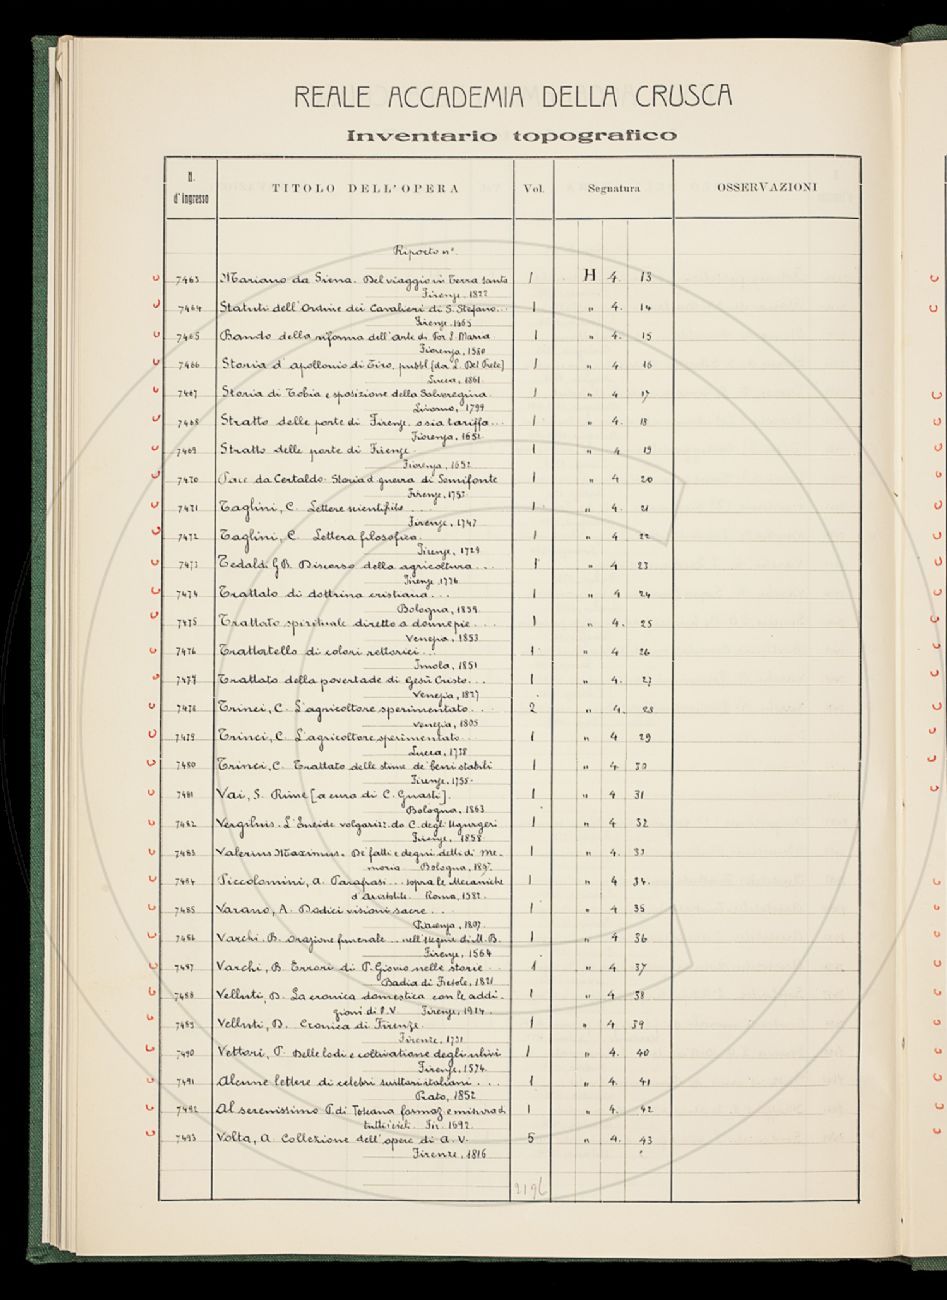 REALE ACCADEMIA DELLA CRUSCA
Inventario topografico
N. d'Ingresso TITOLO DELL'OPERA Vol. Segnatura OSSERVAZIONI
Riporto nº
7463 Mariano da Siena. Del viaggio in Terra Santa 1 H 4. 13
Firenze, 1822
7464 Statuti dell'Ordine dei Cavalieri di S. Stefano... 1 " 4. 14
Firenze, 1665
7465 Bando della riforma dell'arte di Por S. Maria 1 " 4. 15
Fiorenza, 1580
7466 Storia d'Apollonio di Tiro, pubbl. [da L. Del Prete] 1 " 4 16
Lucca, 1861
7467 Storia di Tobia e sposizione della Salveregina. 1 " 4 17
Livorno, 1799
7468 Stratto delle porte di Firenze, o sia tariffa... 1 " 4. 18
Fiorenza, 1651
7469 Stratto delle porte di Firenze. 1 " 4 19
Fiorenza, 1652
7470 Pace da Certaldo. Storia d. guerra di Semifonte 1 " 4 20
Firenze, 1753
7471 Taglini, C. Lettere scientifiche .... 1 " 4. 21
Firenze, 1747
7472 Taglini, C. Lettera filosofica. 1 " 4 22
Firenze, 1729
7473 Tedaldi G.B. Discorso della agricoltura... 1 " 4 23
Firenze, 1776
7474 Trattato di dottrina cristiana... 1 " 4 24
Bologna, 1859
7475 Trattato spirituale diretto a donne pie... 1 " 4. 25
Venezia, 1853
7476 Trattatello di colori rettorici... 1 " 4 26
Imola, 1851
7477 Trattato della povertade di Gesù Cristo... 1 " 4. 27
Venezia, 1827
7478 Trinci, C. L'agricoltore sperimentato... 2 " 4. 28
Venezia, 1805
7479 Trinci, C. L'agricoltore sperimentato... 1 " 4 29
Lucca, 1738
7480 Trinci, C. Trattato delle stime de' beni stabili 1 " 4 30
Firenze, 1755.
7481 Vai, S. Rime [a cura di C. Guasti]. 1 " 4 31
Bologna, 1863
7482 Vergilius. L'Eneide volgarizz. da C. degli Ugurgeri 1 " 4 32
Firenze, 1858
7483 Valerius Maximus. De' fatti e degni detti di me- 1 " 4. 33
moria Bologna,
7484 Piccolomini, A. Parafrasi... sopra le Mecaniche 1 " 4 34.
d'Aristotile. Roma, 1582.
7485 Varano, A. Dodici visioni sacre... 1 " 4 35
Piacenza, 1807
7486 Varchi, B. Orazione funerale... nell'esequie di M. B. 1 " 4 36
Firenze, 1564
7487 Varchi, B. Errori di P. Giovio nelle storie 1 " 4 37
Badia di Fiesole, 1821
7488 Velluti, D. La cronica domestica con le addi- 1 " 4 38
zioni di P. V. Firenze, 1914.
7489 Velluti, D. Cronica di Firenze. 1 " 4 39
Firenze, 1731
7490 Vettori, P. Delle lodi e coltivatione degli ulivi 1 " 4. 40
Firenze, 1574.
7491 Alcune lettere di celebri scrittori italiani... 1 " 4. 41
Prato, 1852
7492 Al serenissimo P. di Toscana formaz. e misura di 1 " 4. 42
tutti i cieli. Fir. 1692.
7493 Volta, A. Collezione dell'opere di A. V. 5 " 4. 43
Firenze, 1816